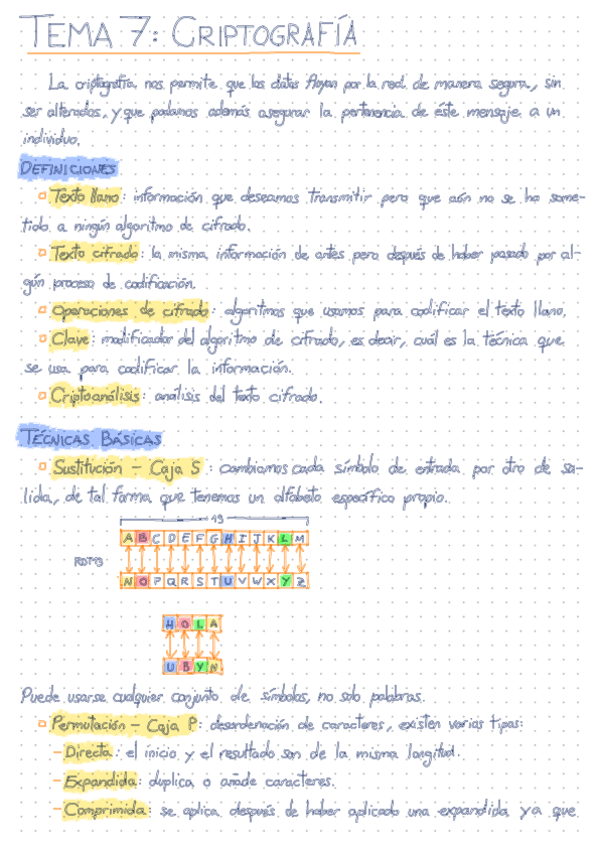 TEMA 7: CRIPTOGRAFÍA
La criptografía nos permite que los datos fluyan por la red de manera segura, sin
ser alterados, y que podamos además asegurar la pertenencia de éste mensaje a un
individuo.
DEFINICIONES
Texto llano: información que deseamos transmitir pero que aún no se ha some-
tido a ningún algoritmo de cifrado.
Texto cifrado: la misma información de antes pero después de haber pasado por al-
gún proceso de codificación.
Operaciones de cifrado: algoritmos que usamos para codificar el texto llano.
Clave: modificador del algoritmo de cifrado, es decir, cuál es la técnica que
se usa para codificar la información.
Criptoanálisis: análisis del texto cifrado.
TÉCNICAS BÁSICAS
Sustitución - Caja S: cambiamos cada símbolo de entrada por otro de sa-
lida, de tal forma que tenemos un alfabeto específico propio.
13
A B C D E F G H I J K L M
ROT13
N O P Q R S T U V W X Y Z
H O L A
U B Y N
Puede usarse cualquier conjunto de símbolos, no solo palabras.
Permutación - Caja P: desordenación de caracteres, existen varios tipos:
- Directa: el inicio y el resultado son de la misma longitud.
- Expandida: duplica o añade caracteres.
- Comprimida: se aplica después de haber aplicado una expandida ya que